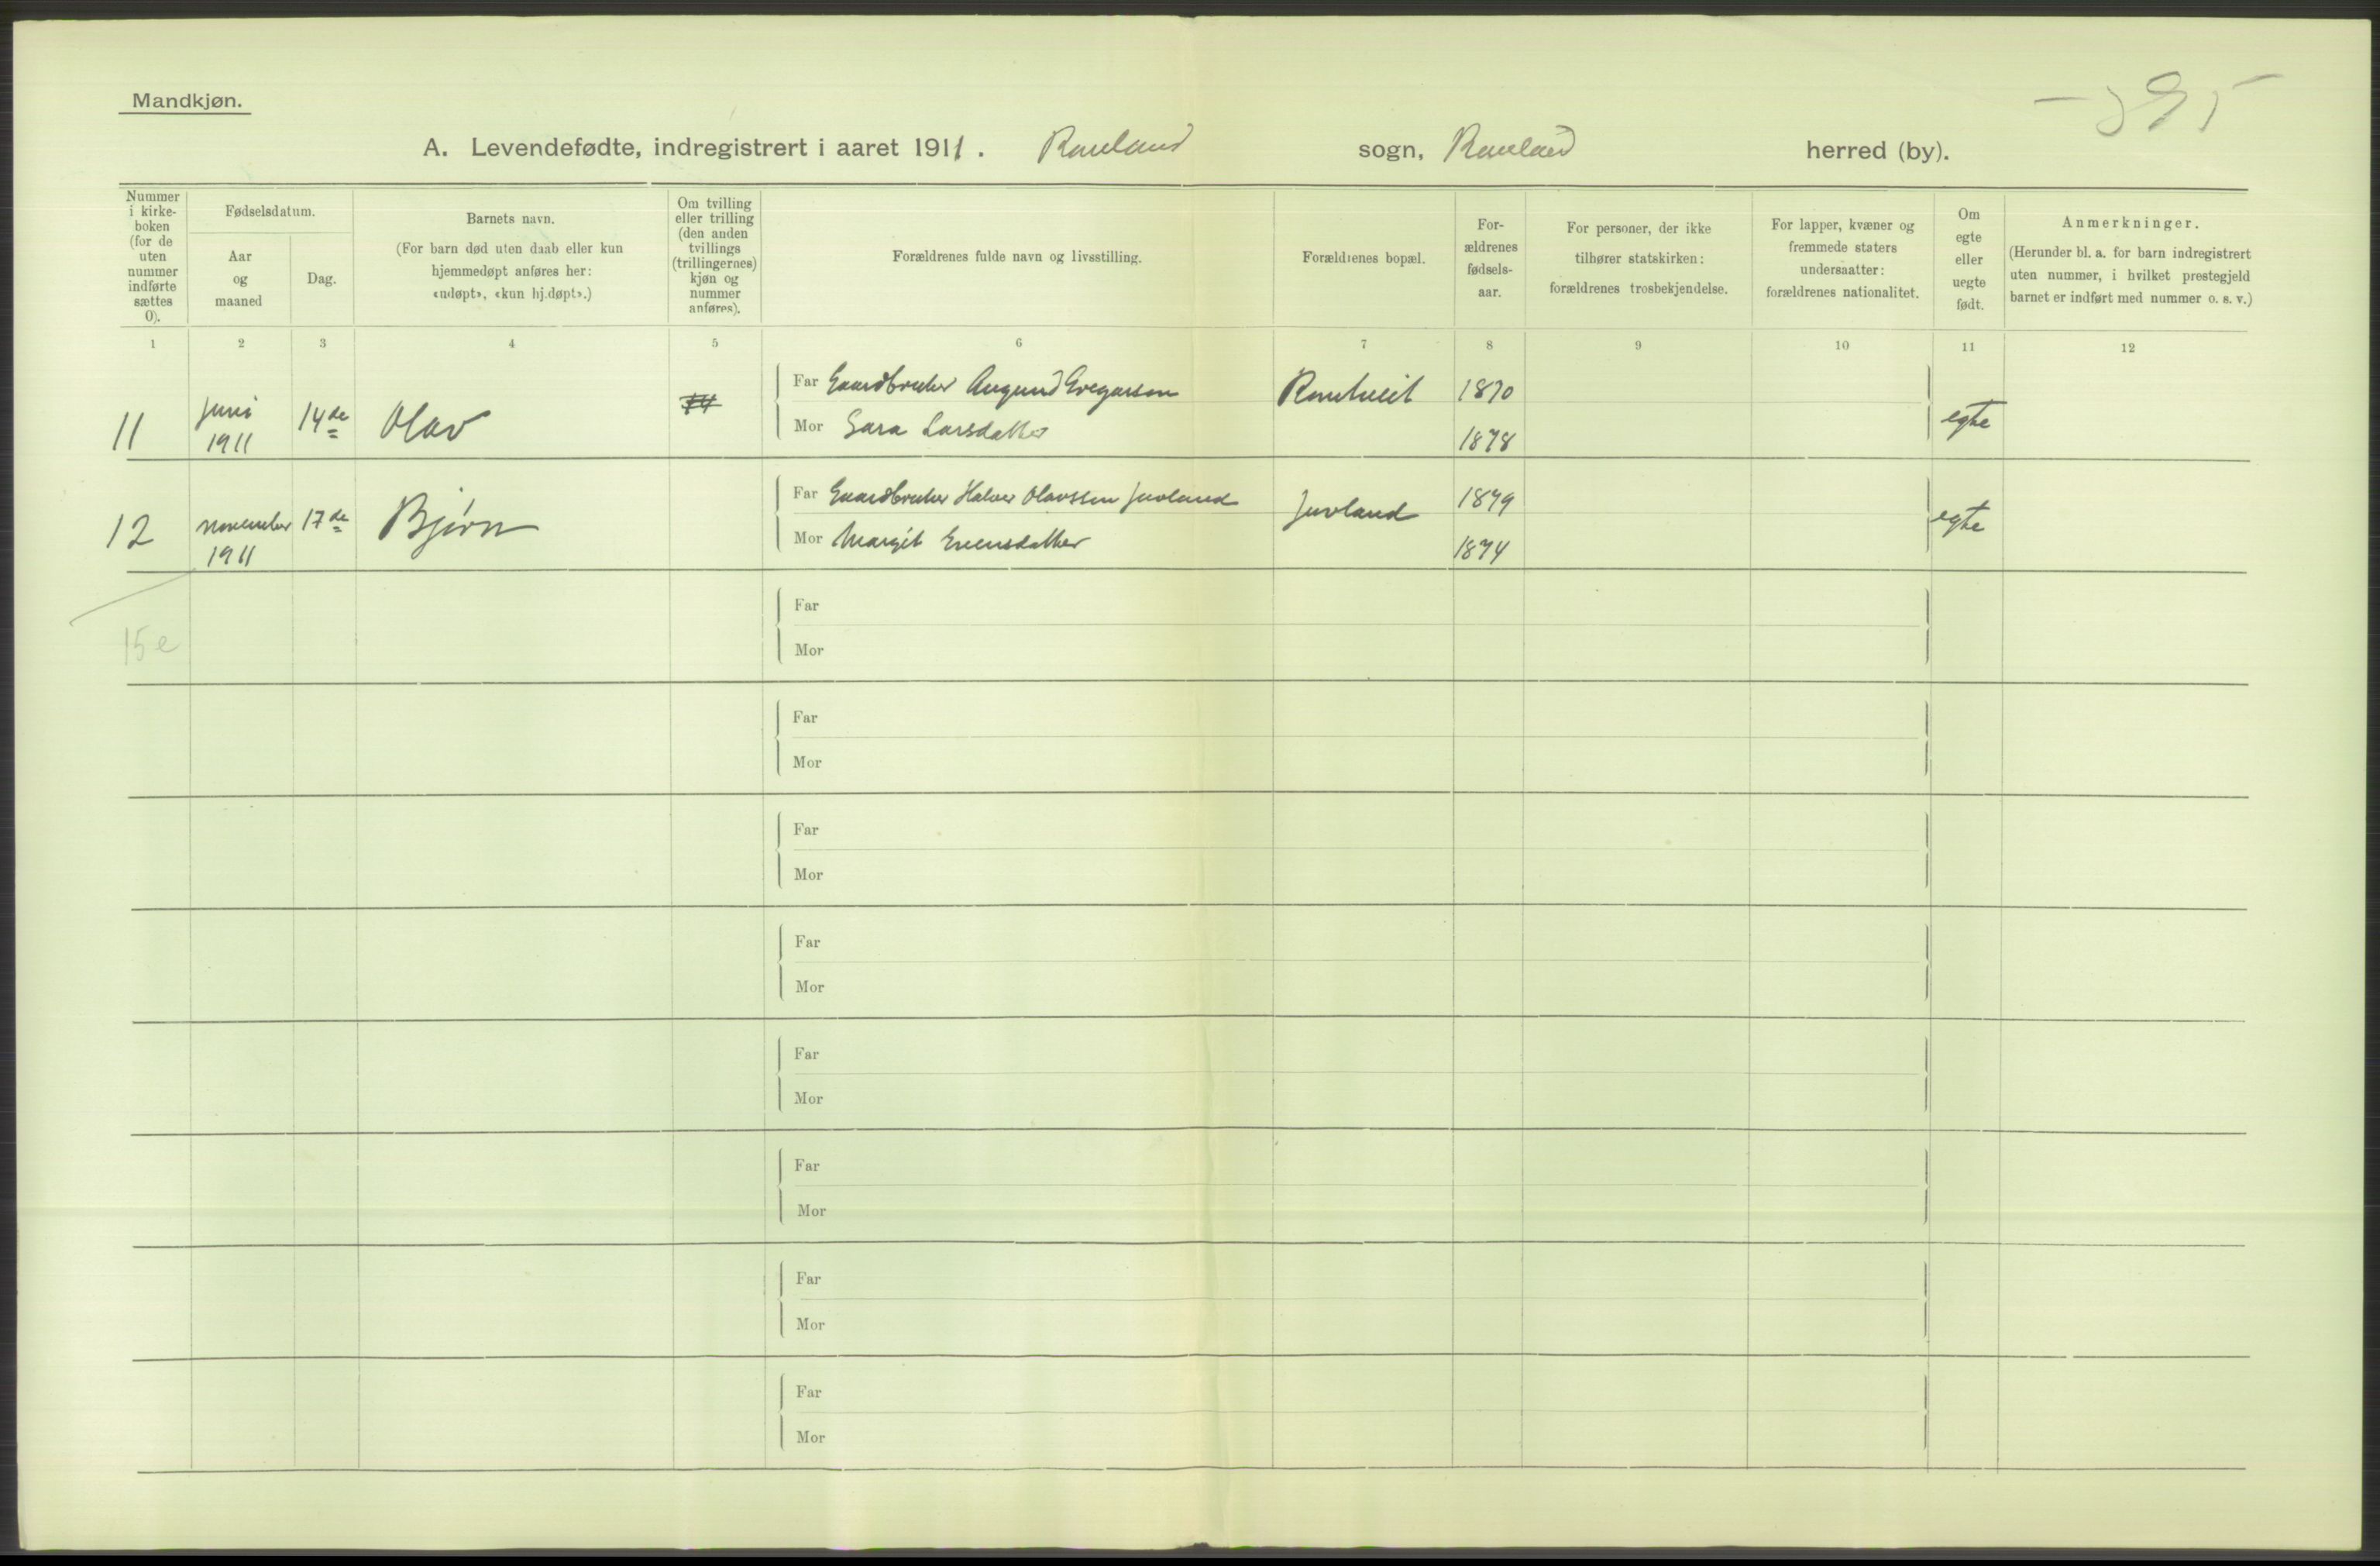 Mandkjøn.
A. Levendefødte, indregistrert i aaret 1911. Rauland sogn, Rauland herred (by).
Nummer i kirke-boken (for de uten nummer indførte sættes 0).
Fødselsdatum.
Aar og maaned
Dag.
Barnets navn.
(For barn død uten daab eller kun
hjemmedøpt anføres her:
«udøpt», «kun hj.døpt».)
Om tvilling
eller trilling
(den anden
tvillings
(trillingernes)
kjøn og
nummer
anføres).
Forældrenes fulde navn og livsstilling.
Forældrenes bopæl.
For-
ældrenes
fødsels-
aar.
For personer, der ikke
tilhører statskirken:
forældrenes trosbekjendelse.
For lapper, kvæner og
fremmede staters
undersaatter:
forældrenes nationalitet.
Om
egte
eller
uegte
født.
Anmerkninger.
(Herunder bl. a. for barn indregistrert
uten nummer, i hvilket prestegjeld
barnet er indført med nummer o. s. v.)
1 2 3 4 5 6 7 8 9 10 11 12
11 Juni 1911 14de Olav
Far Gaardbruker Augund Gregarson 1870
Mor Sara Larsdatter 1878
egte
12 november 1911 17de Bjørn
Far Gaardbruker Halvor Olavssen Juvland Juvland 1879
Mor Margit Svensdatter 1874
egte
15 e
Far
Mor
Far
Mor
Far
Mor
Far
Mor
Far
Mor
Far
Mor
Far
Mor
Far
Mor